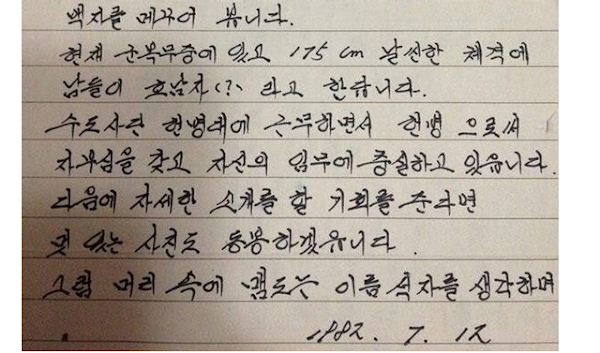 백지를 메꾸어 봅니다.
현재 군복무중에 있고 175 cm 날씬한 체격에
남들이 호남자(?) 라고 한답니다.
수도사단 헌병대에 근무하면서 헌병으로써
자부심을 갖고 자신의 임무에 충실하고 있읍니다.
다음에 자세한 소개를 할 기회를 준다면
멋 있는 사진도 동봉하겠읍니다.
그럼 머리 속에 맴도는 이름 석자를 생각하며
1982. 7. 12